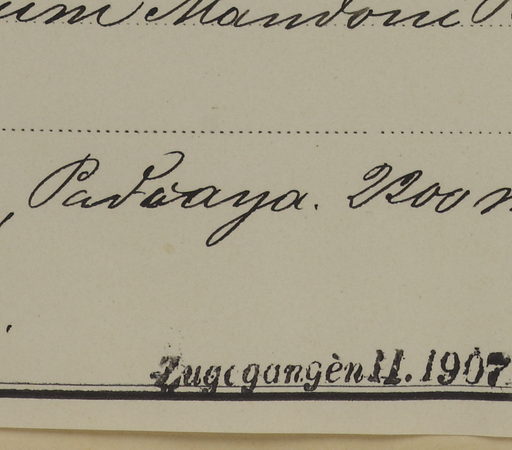 Mandoni
Padcaya. 2200 m
Zugegangen II. 1907